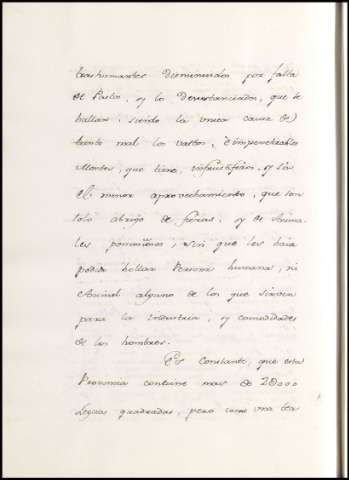 trashumantes disminuidos por falta
de Pastos, y lo desustanciados, que se
hallan; siendo la unica causa de
tanto mal los vastos, è impenetrables
Montes, que tiene, infructiferos, y sin
el menor aprovechamiento, que son
solo abrigo de fieras, y de Anima-
les ponzoñosos, sin que les haia
podido hollar Persona humana, ni
Animal alguno de los que sirven
para la industria, y comodidades
de los hombres.
Es Constante, que esta
Provincia contiene mas de 2000
Leguas quadradas, pero como una ter